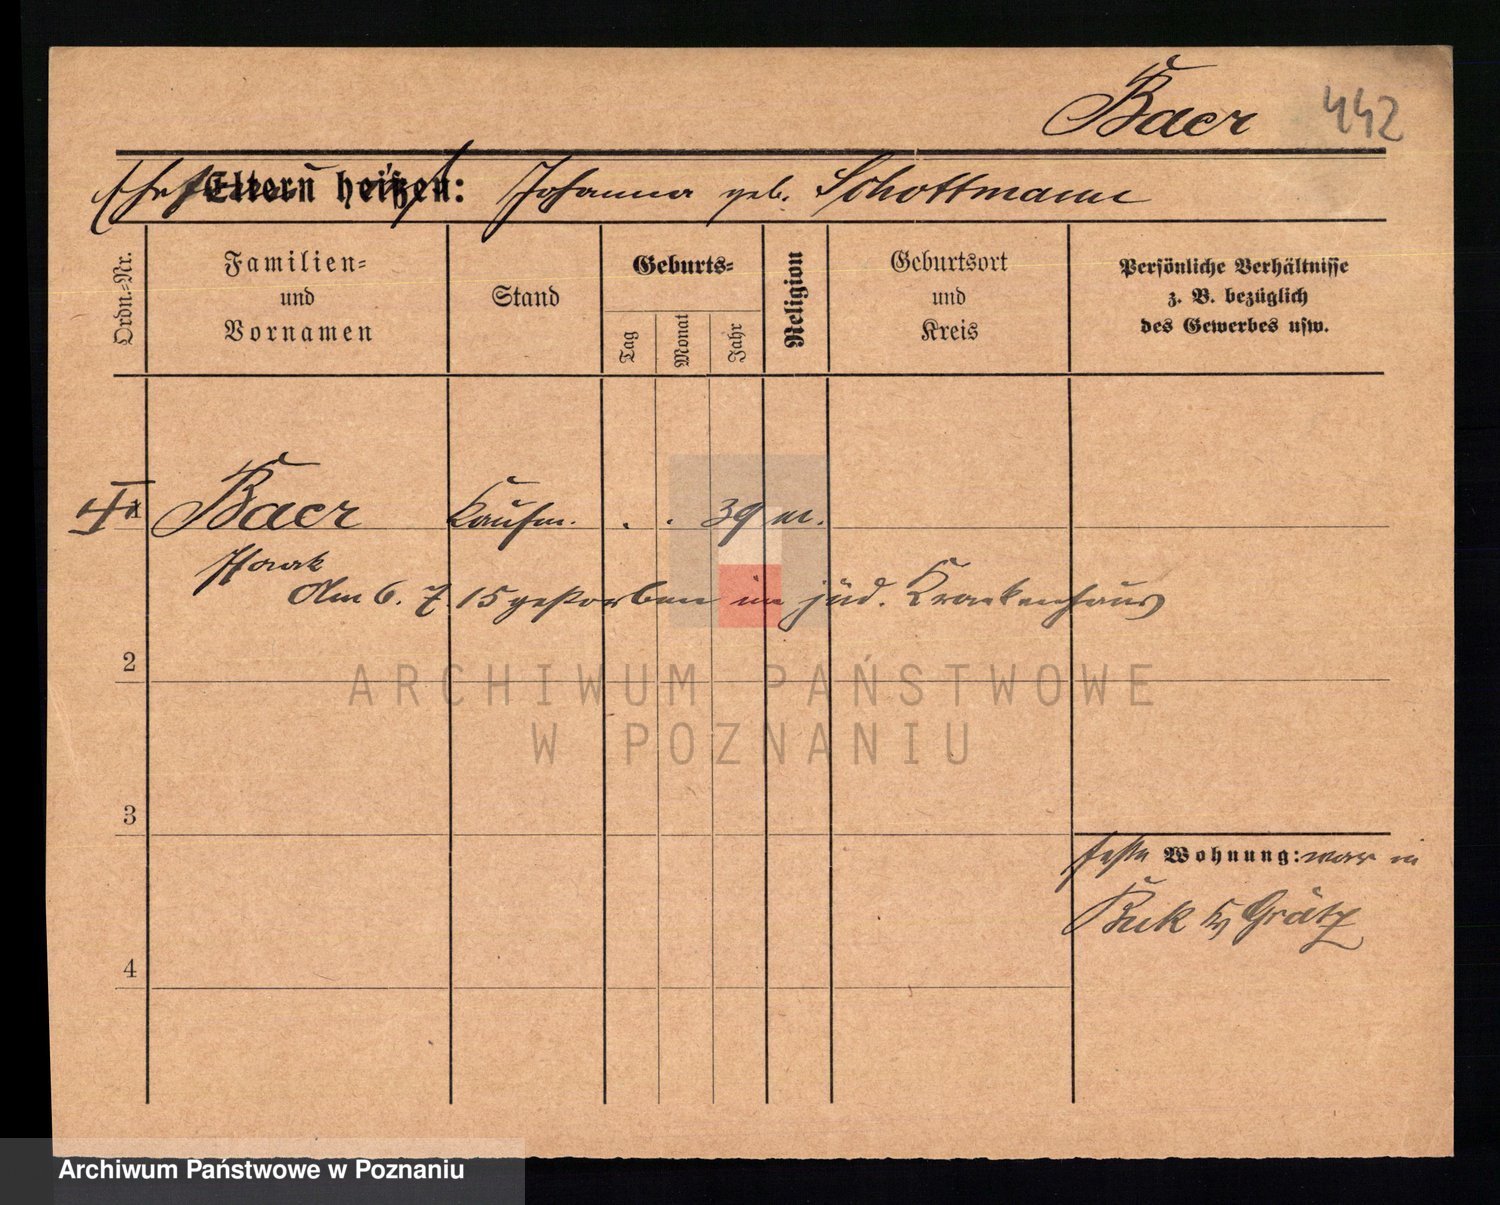 Baer 442
Ehefrau Eltern heißen: Johanna geb. Schottmann
Ordn.-Nr.
Familien-
und
Vornamen
Stand
Geburts-
Tag
Monat
Jahr
Religion
Geburtsort
und
Kreis
Persönliche Verhältnisse
z. B. bezüglich
des Gewerbes usw.
Baer Kaufm. . . 39 m.
Am 6. 7. 15 gestorben im jüd. Krankenhaus
2
ARCHIWUM PAŃSTWOWE
W POZNANIU
3
feste Wohnung: war in
Buk Grätz
4
Archiwum Państwowe w Poznaniu